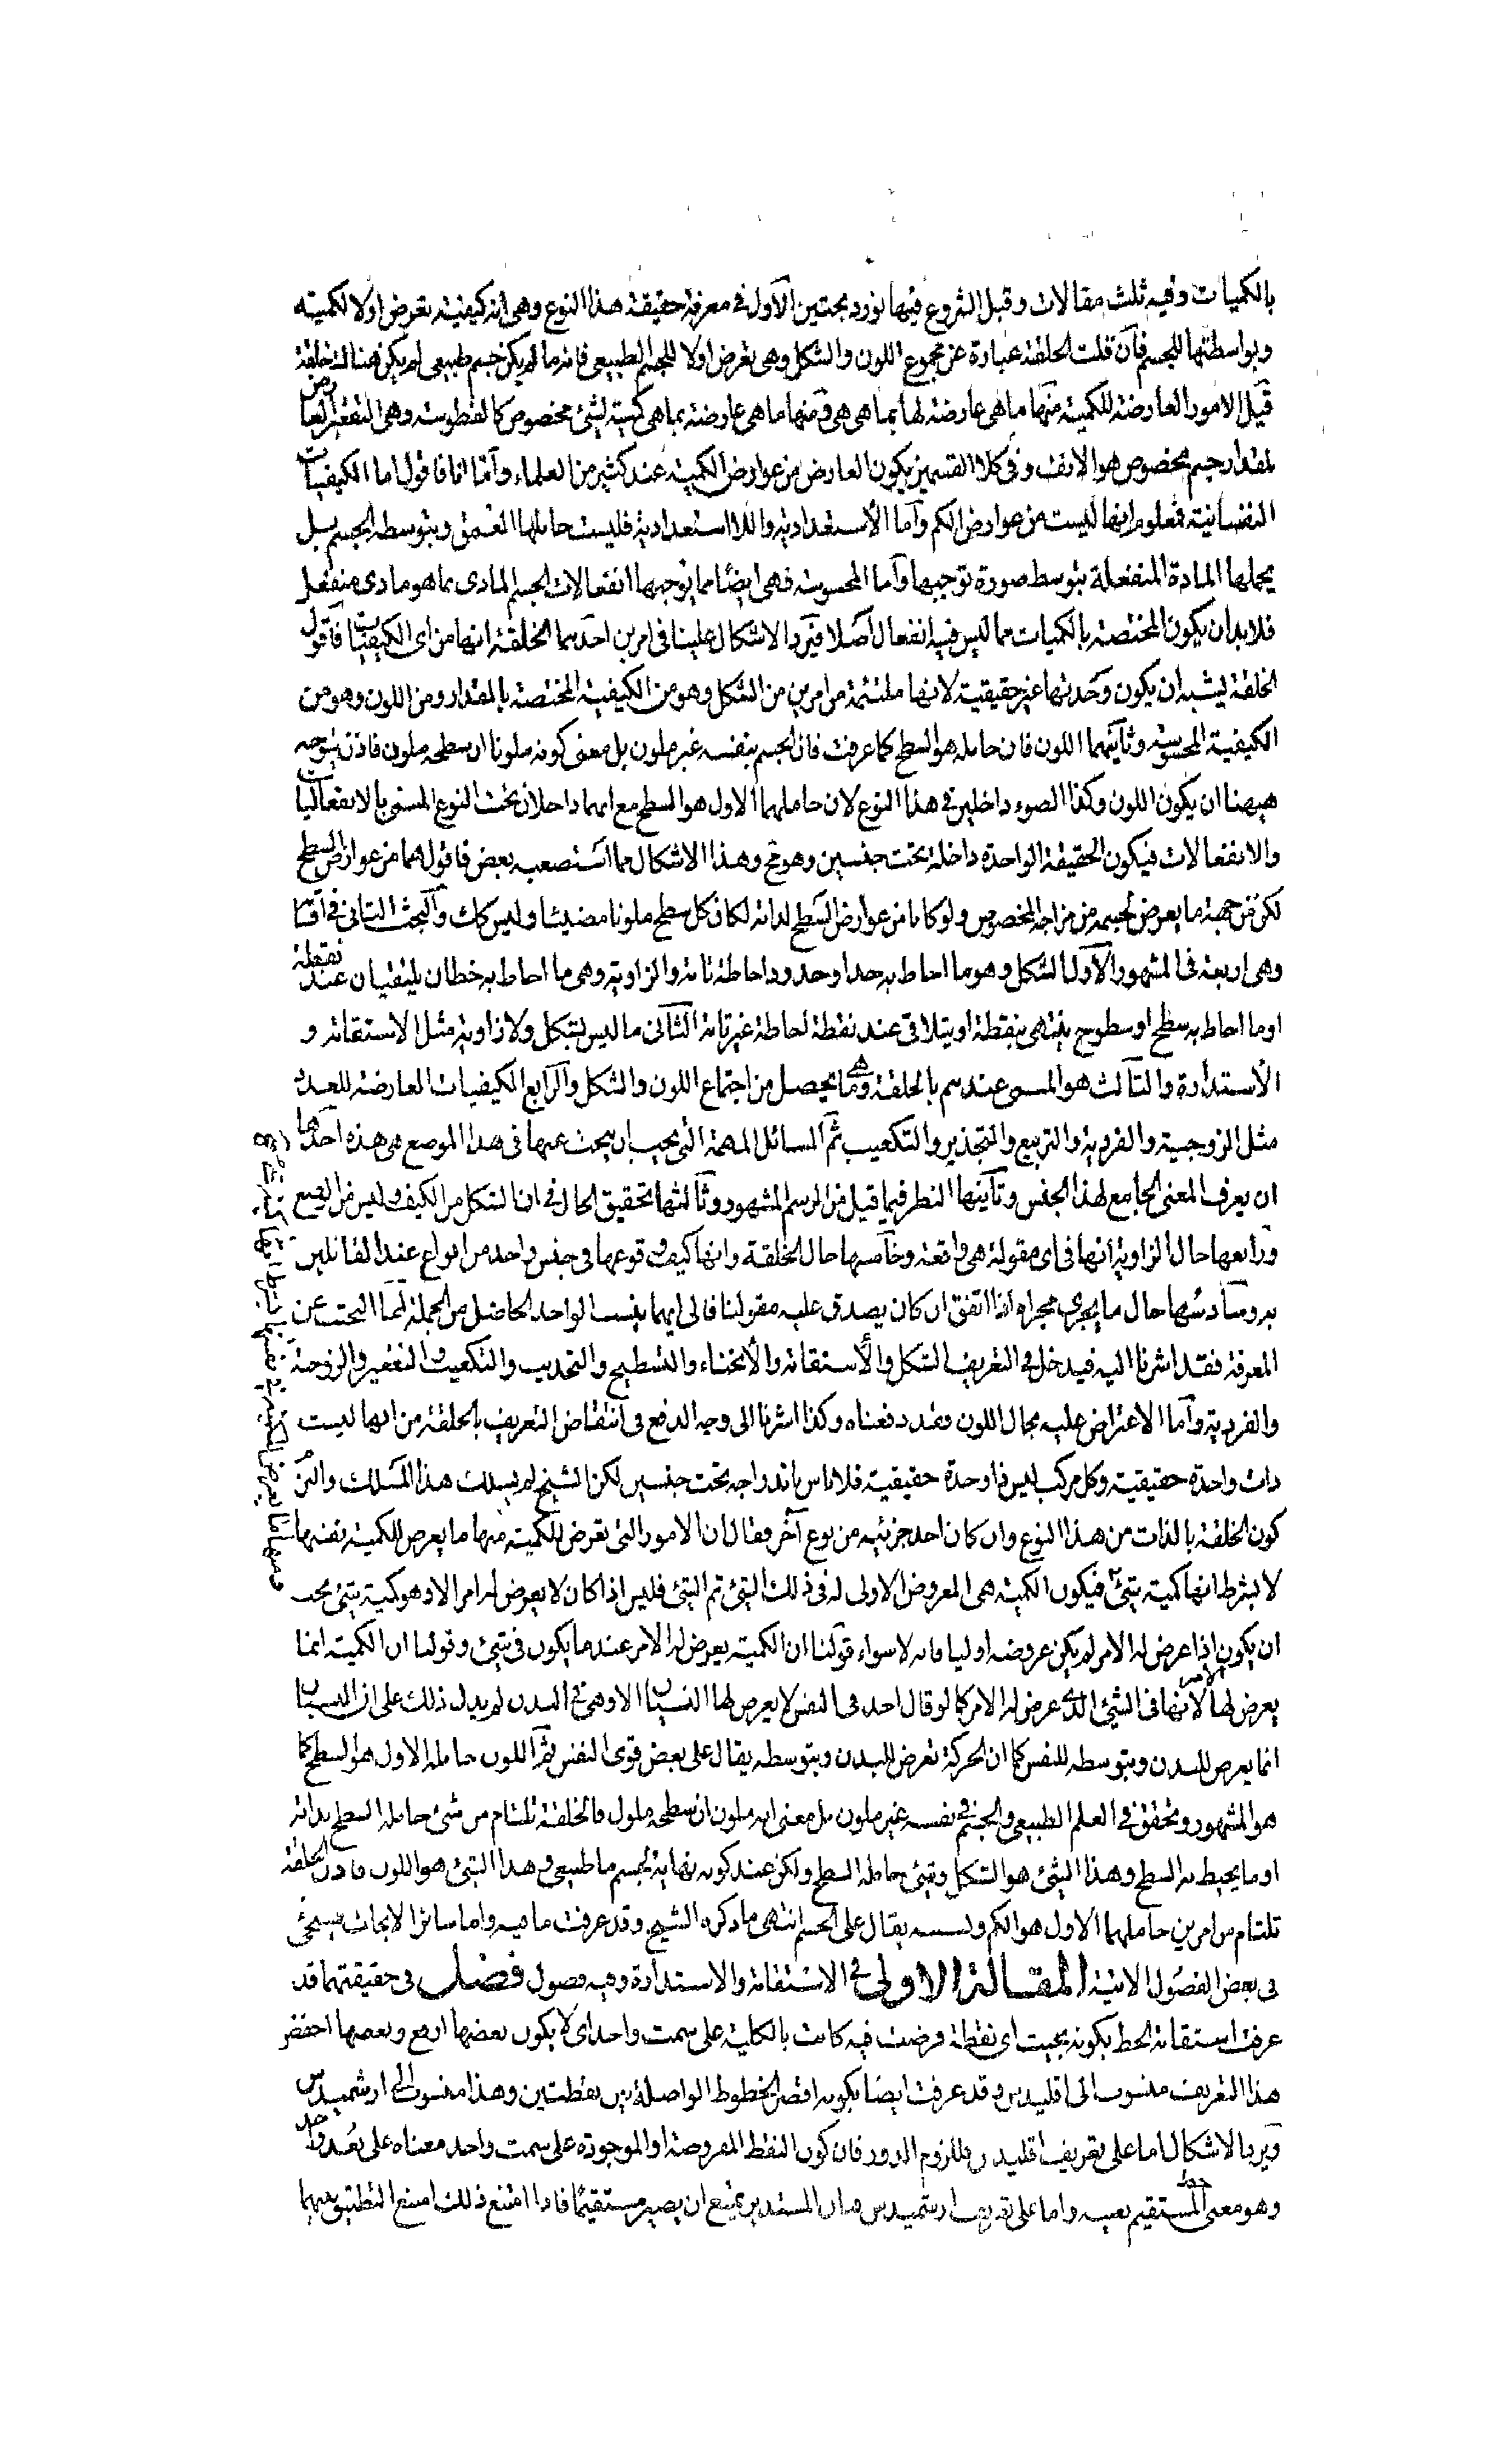 بالكميات وفيه ثلث مقالات وقبل الشروع فيها نورد بحثين الأول في معرفة حقيقة هذا النوع وهى انه كيفية تعرض اولا لكميته
وبواسطتها للجسم فان قلت الخلقة عبارة عن مجموع اللون والشكل وهى تعرض اولا للجسم الطبيعي فانه ما لم يكن جسم طبيعى لم يكن هناك خلقة
قيل الامور العارضة للكمية منها ما هى عارضة لها بما هى هى ومنها ما هى عارضة بما هى كمية لشئ مخصوص كالفطوسة وهى التقعير العارض
لمقدار جسم مخصوص هو الانف وفى كلا القسمين يكون العارض من عوارض الكمية عند كثير من العلماء وأما انا فاقول اما الكيفيات
النفسانية فمعلوم انها ليست من عوارض الكم وأما الاستعدادية واللااستعدادية فليست حاملها العمق وبتوسطه الجسم بل
يحملها المادة المنفعلة بتوسط صورة توجبها وأما المحسوسة فهى ايضًا مما يوجبها انفعالات الجسم المادى بما هو مادى منفعل
فلابد ان يكون المختصة بالكميات مما ليس فيه انفعال أصلا فيرد الاشكال علينا فى امرين احدهما الخلقة انها من اى الكيفيات فأقول
الخلقة يشبه ان يكون وحدتها غير حقيقية لانها ملتئمة من امرين من الشكل وهو من الكيفية المختصة بالمقدار ومن اللون وهو من
الكيفية المحسوسة وثانيهما اللون فان حامله هو السطح كما عرفت فان الجسم بنفسه غير ملون بل معنى كونه ملونا ان سطحه ملون فاذن يتوجه
هيهنا ان يكون اللون وكذا الضوء داخلين فى هذا النوع لان حاملهما الاول هو السطح مع انهما داخلان تحت النوع المسمى بالانفعاليات
والانفعالات فيكون الحقيقة الواحدة داخلة تحت جنسين وهو مح وهذا الاشكال مما استصعبه بعض فاقول هما من عوارض السطح
لكن من جهة ما يعرض لجسمه من مزاجه المخصوص ولو كانا من عوارض السطح لذاته لكان كل سطح ملونا مضيئا وليس كك والبحث الثانى فى أقسا
وهى اربعة فى المشهور الأول الشكل وهو ما احاط به حد او حدود احاطة تامة والزاوية وهى ما احاط به خطان يلتقيان عند نقطة
او ما احاط به سطح او سطوح ينتهى بنقطة او يتلاقى عند نقطة احاطة غير تامة الثانى ما ليس بشكل ولا زاوية مثل الاستقامة و
الأستدارة والثالث هو المسمى عندهم بالخلقة وهى ما يحصل من اجتماع اللون والشكل والرابع الكيفيات العارضة للعدد
مثل الزوجية والفردية والتربيع والتجذير والتكعيب ثم المسائل المهمة التى يجب ان يبحث عنها فى هذا الموضع هى هذه احدها
ان يعرف المعنى الجامع لهذا الجنس وثانيها النظر فيما قيل من الرسم المشهور وثالثها تحقيق الحال فى ان الشكل من الكيف وليس من الوضع
ورابعها حال الزاوية انها فى اى مقولة هى واقعة وخامسها حال الخلقة وانها كيف وقوعها فى جنس واحد من انواع عند القائلين
به وسادسها حال ما يجرى مجراه اذا اتفق ان كان يصدق عليه مقولتنا فالى ايهما ينسب الواحد الحاصل من الجملة أما البحث عن
المعرفة فقد اشرنا اليه فيدخل فى التعريف الشكل والأستقامة والأنحناء والتسطيح والتحديب والتكعيب والتقعير والزوجية
والفردية وأما الاعتراض عليه بحال اللون فقد دفعناه وكذا اشرنا الى وجه الدفع فى انتقاض التعريف بالخلقة من انها ليست
ذات واحدة حقيقية وكل مركب ليس ذا وحدة حقيقية فلا باس باندراجه تحت جنسين لكن الشيخ لم يسلك هذا المسلك والتزم
كون الخلقة بالذات من هذا النوع وان كان احد جزئيه من نوع آخر فقال ان الامور التى تعرض للكمية منها ما يعرض للكمية بنفسها
لا بشرط انها كمية شئ فيكون الكمية هى المعروض الاولى له فى ذلك الشئ ثم الشئ فليس اذا كان لا يعرض له امر الا وهو كمية شئ يجب
ان يكون اذا عرض له الامر لم يكن عروضه اوليا فانه لا سواء قولنا ان الكمية يعرض لها الامر عندما يكون فى شئ وقولنا ان الكمية انما
يعرض لها الامر لانها فى الشئ الذى عرض له الامر كما لو قال احد فى النفس لا يعرض لها النسيان الا وهى فى البدن لم يدل ذلك على ان النسيان
انما يعرض للبدن وبتوسطه للنفس كما ان الحركة تعرض للبدن وبتوسطه يقال على بعض قوى النفس ثم اللون حامله الاول هو السطح كما
هو المشهور وتحقق فى العلم الطبيعى والجسم فى نفسه غير ملون بل معنى انه ملون ان سطحه ملون فالخلقة تلتئام من شئ حامله السطح بذاته
او ما يحيط به السطح وهذا الشئ هو الشكل وشئ حامله السطح ولكن عند كونه نهاية لجسم ما طبيعى وهذا الشئ هو اللون فاذن الخلقة
تلتئام من امرين حاملهما الاول هو الكم وبسببه يقال على الجسم انتهى ما ذكره الشيخ وقد عرفت ما فيه واما سائر الابحاث فسيجئ
فى بعض الفصول الاتية المقالة الاولى فى الاستقامة والاستدارة وفيه فصول فصل فى حقيقتهما قد
عرفت استقامة الخط بكونه بحيث اى نقطة فرضت فيه كانت بالكلية على سمت واحد اى لا يكون بعضها ارفع وبعضها اخفض
هذا التعريف منسوب الى اقليدس وقد عرفت ايضا بكونه اقصر الخطوط الواصلة بين نقطتين وهذا منسوب الى ارشميدس
ويرد الاشكال اما على تعريف اقليدس فللزوم الدور فان كون النقط المفروضة او الموجودة على سمت واحد معناه على بُعد واحد
وهو معنى الخط المستقيم بعينه واما على تعريف ارشميدس فبان المستدير يمتنع ان يصير مستقيمًا فاذا امتنع ذلك امتنع التطبيق بينهما